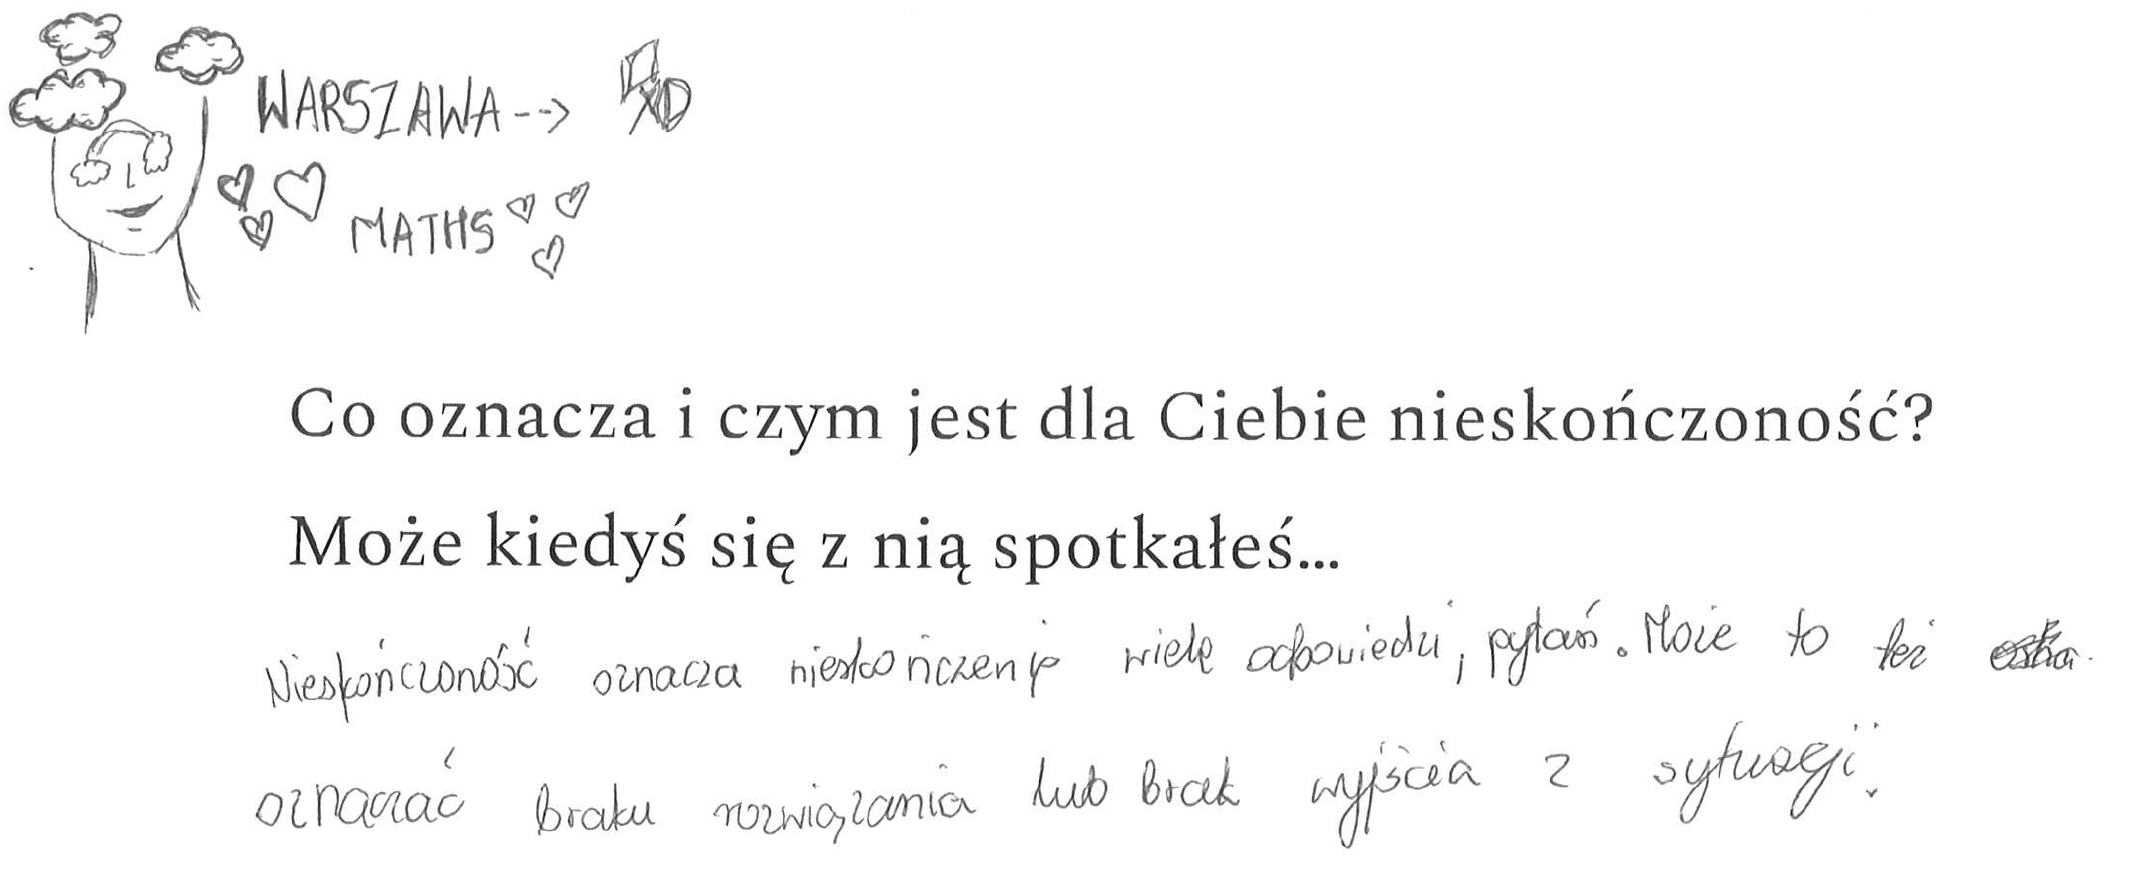 WARSZAWA-->
MATHS
Co oznacza i czym jest dla Ciebie nieskończoność?
Może kiedyś się z nią spotkałeś...
Nieskończoność oznacza nieskończenie wiele odpowiedzi, pytań. Może to też
oznaczać braku rozwiązania lub brak wyjścia z sytuacji.